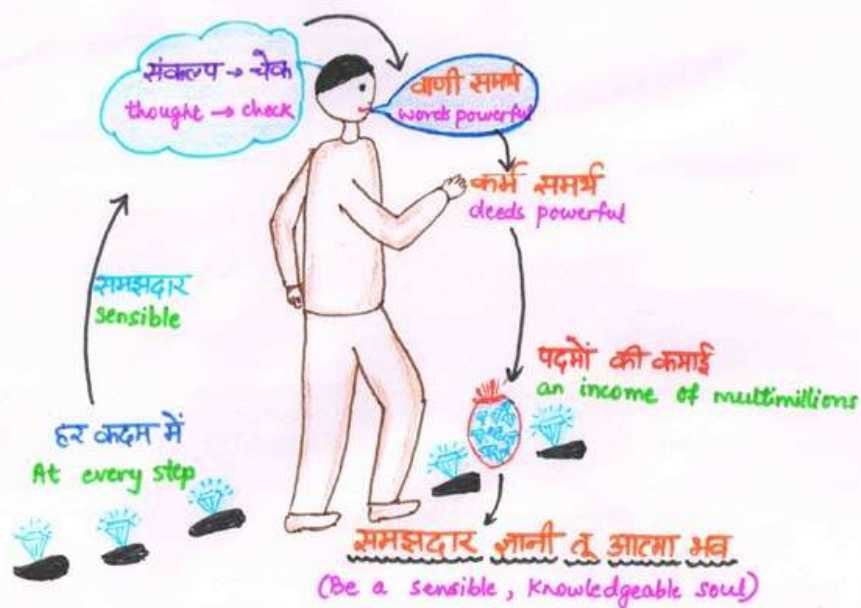 संकल्प → चेक
thought → check
वाणी समर्थ
words powerful
कर्म समर्थ
deeds powerful
समझदार
sensible
पदमों की कमाई
an income of multimillions
हर कदम में
At every step
समझदार ज्ञानी तू आत्मा भव
(Be a sensible, knowledgeable soul)